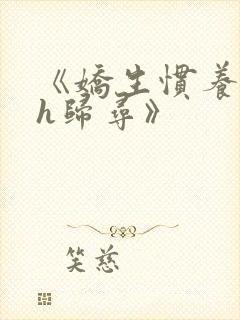 《嬌生慣養
h歸尋》
笑慈